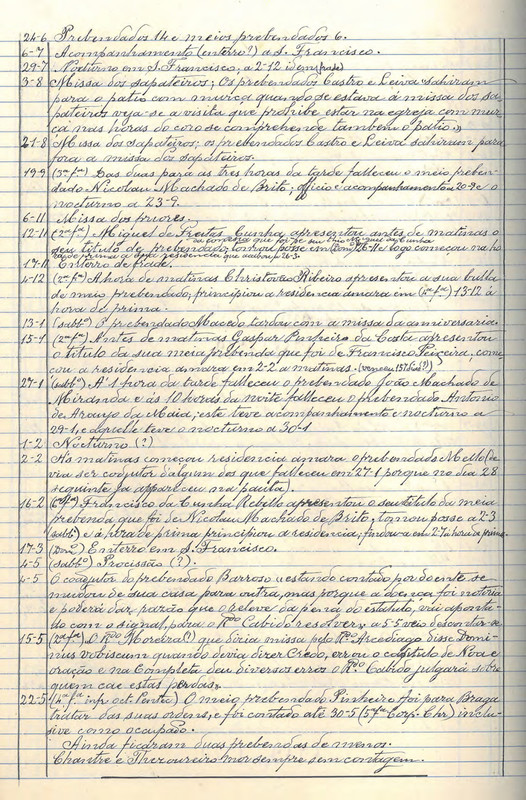 24-6 Prebendados 14 e meios prebendados 6.
6-7 Acompanhamento (enterro?) a S. Francisco.
29-7 Nocturno em S. Francisco, a 2-12 idem
3-8 Missa dos sapateiros; Os prebendados Castro e Leiva "sahiram
para o patio com murça quando se estava á missa dos sa-
pateiros veja-se a visita que prohibe estar na egreja com mur-
ça nas horas do coro se comprehende tambem o patio."
21-8 Missa dos sapateiros; os prebendados Castro e Leiva sahiram para
fora a missa dos sapateiros.
19-9 (3ª fª) Das duas para as tres horas da tarde falleceu o meio preben-
dado Nicolau Machado de Brito; officio e acompanhamento a 20-9 e o
nocturno a 23-9.
6-11 Missa dos priores.
12-11 (2ª fª) Miguel de Freitas Cunha apresentou antes de matinas o
seu titulo de prebendado, tomou posse em (Domº) 26-11 e logo começou na ho
ra de prima a sua residencia que acabou a 26-3.
17-11 Enterro de frade.
4-12 (2ª fª) A hora de matinas Christovão Ribeiro apresentou a sua bulla
de meio prebendado; principiou a residencia amara em (4ª fª) 13-12 á
hora de prima.
13-1 (sabbº) O prebendado Macedo tardou com a missa da anniversaria.
15-1 (2ª fª) Antes de matinas Gaspar Pinheiro da Costa apresentou
o titulo da sua meia prebenda que foi de Francisco Peixeira, come
çou a residencia amara em 2-2 a matinas. (venceu 151 dias?)
27-1 (sabbº) A 1 hora da tarde falleceu o prebendado João Machado de
Miranda e ás 10 horas da noite falleceu o prebendado Antonio
de Araujo da Maia; este teve acompanhamento e nocturno a
29-1, e aquelle teve o nocturno a 30-1
1-2 Nocturno (?)
2-2 As matinas começou residencia amara o prebendado Mello (de
via ser coadjutor d'algum dos que falleceu em 27-1 porque no dia 28
seguinte ja appareceu na pauta).
16-2 (6ª fª) Francisco da Cunha Rebello apresentou o seu titulo da meia
prebenda que foi de Nicolau Machado de Brito, tomou posse a 2-3
(sabbº) e á hora de prima principiou a residencia; findou-a em 2-7 á hora de prima.
17-3 (Domº) Enterro em S. Francisco.
4-5 (sabbº) Procissão (?).
4-5 O coadjutor do prebendado Barroso "estando contado por doente se
mudou de sua casa para outra, mas porque a doença foi notoria
e poderá dar razão que o releve da pena do estatuto, vai aponta-
do com o signal, para o Rdo Cabido resolver"; a 5-5 veio descontar-se
15-5 "O Rdo Moreira(?) que dizia missa pelo Rdo Arcediago disse Domi-
nus vobiscum quando devia dizer Credo, errou o capitulo de Noa e
oração e na Completa deu diversos erros o Rdo Cabido julgará sobre
quem cae estas perdas".
22-5 (4ª fª infr. oct. Pentec) O meio prebendado Pinheiro foi para Braga
tratar das suas ordens, e foi contado até 30-5 (5ª fª Corp. Chr) inclu-
sive como occupado.
Ainda ficaram duas prebendas de menos.
Chantre e Thesoureiro-mor sempre sem contagem.